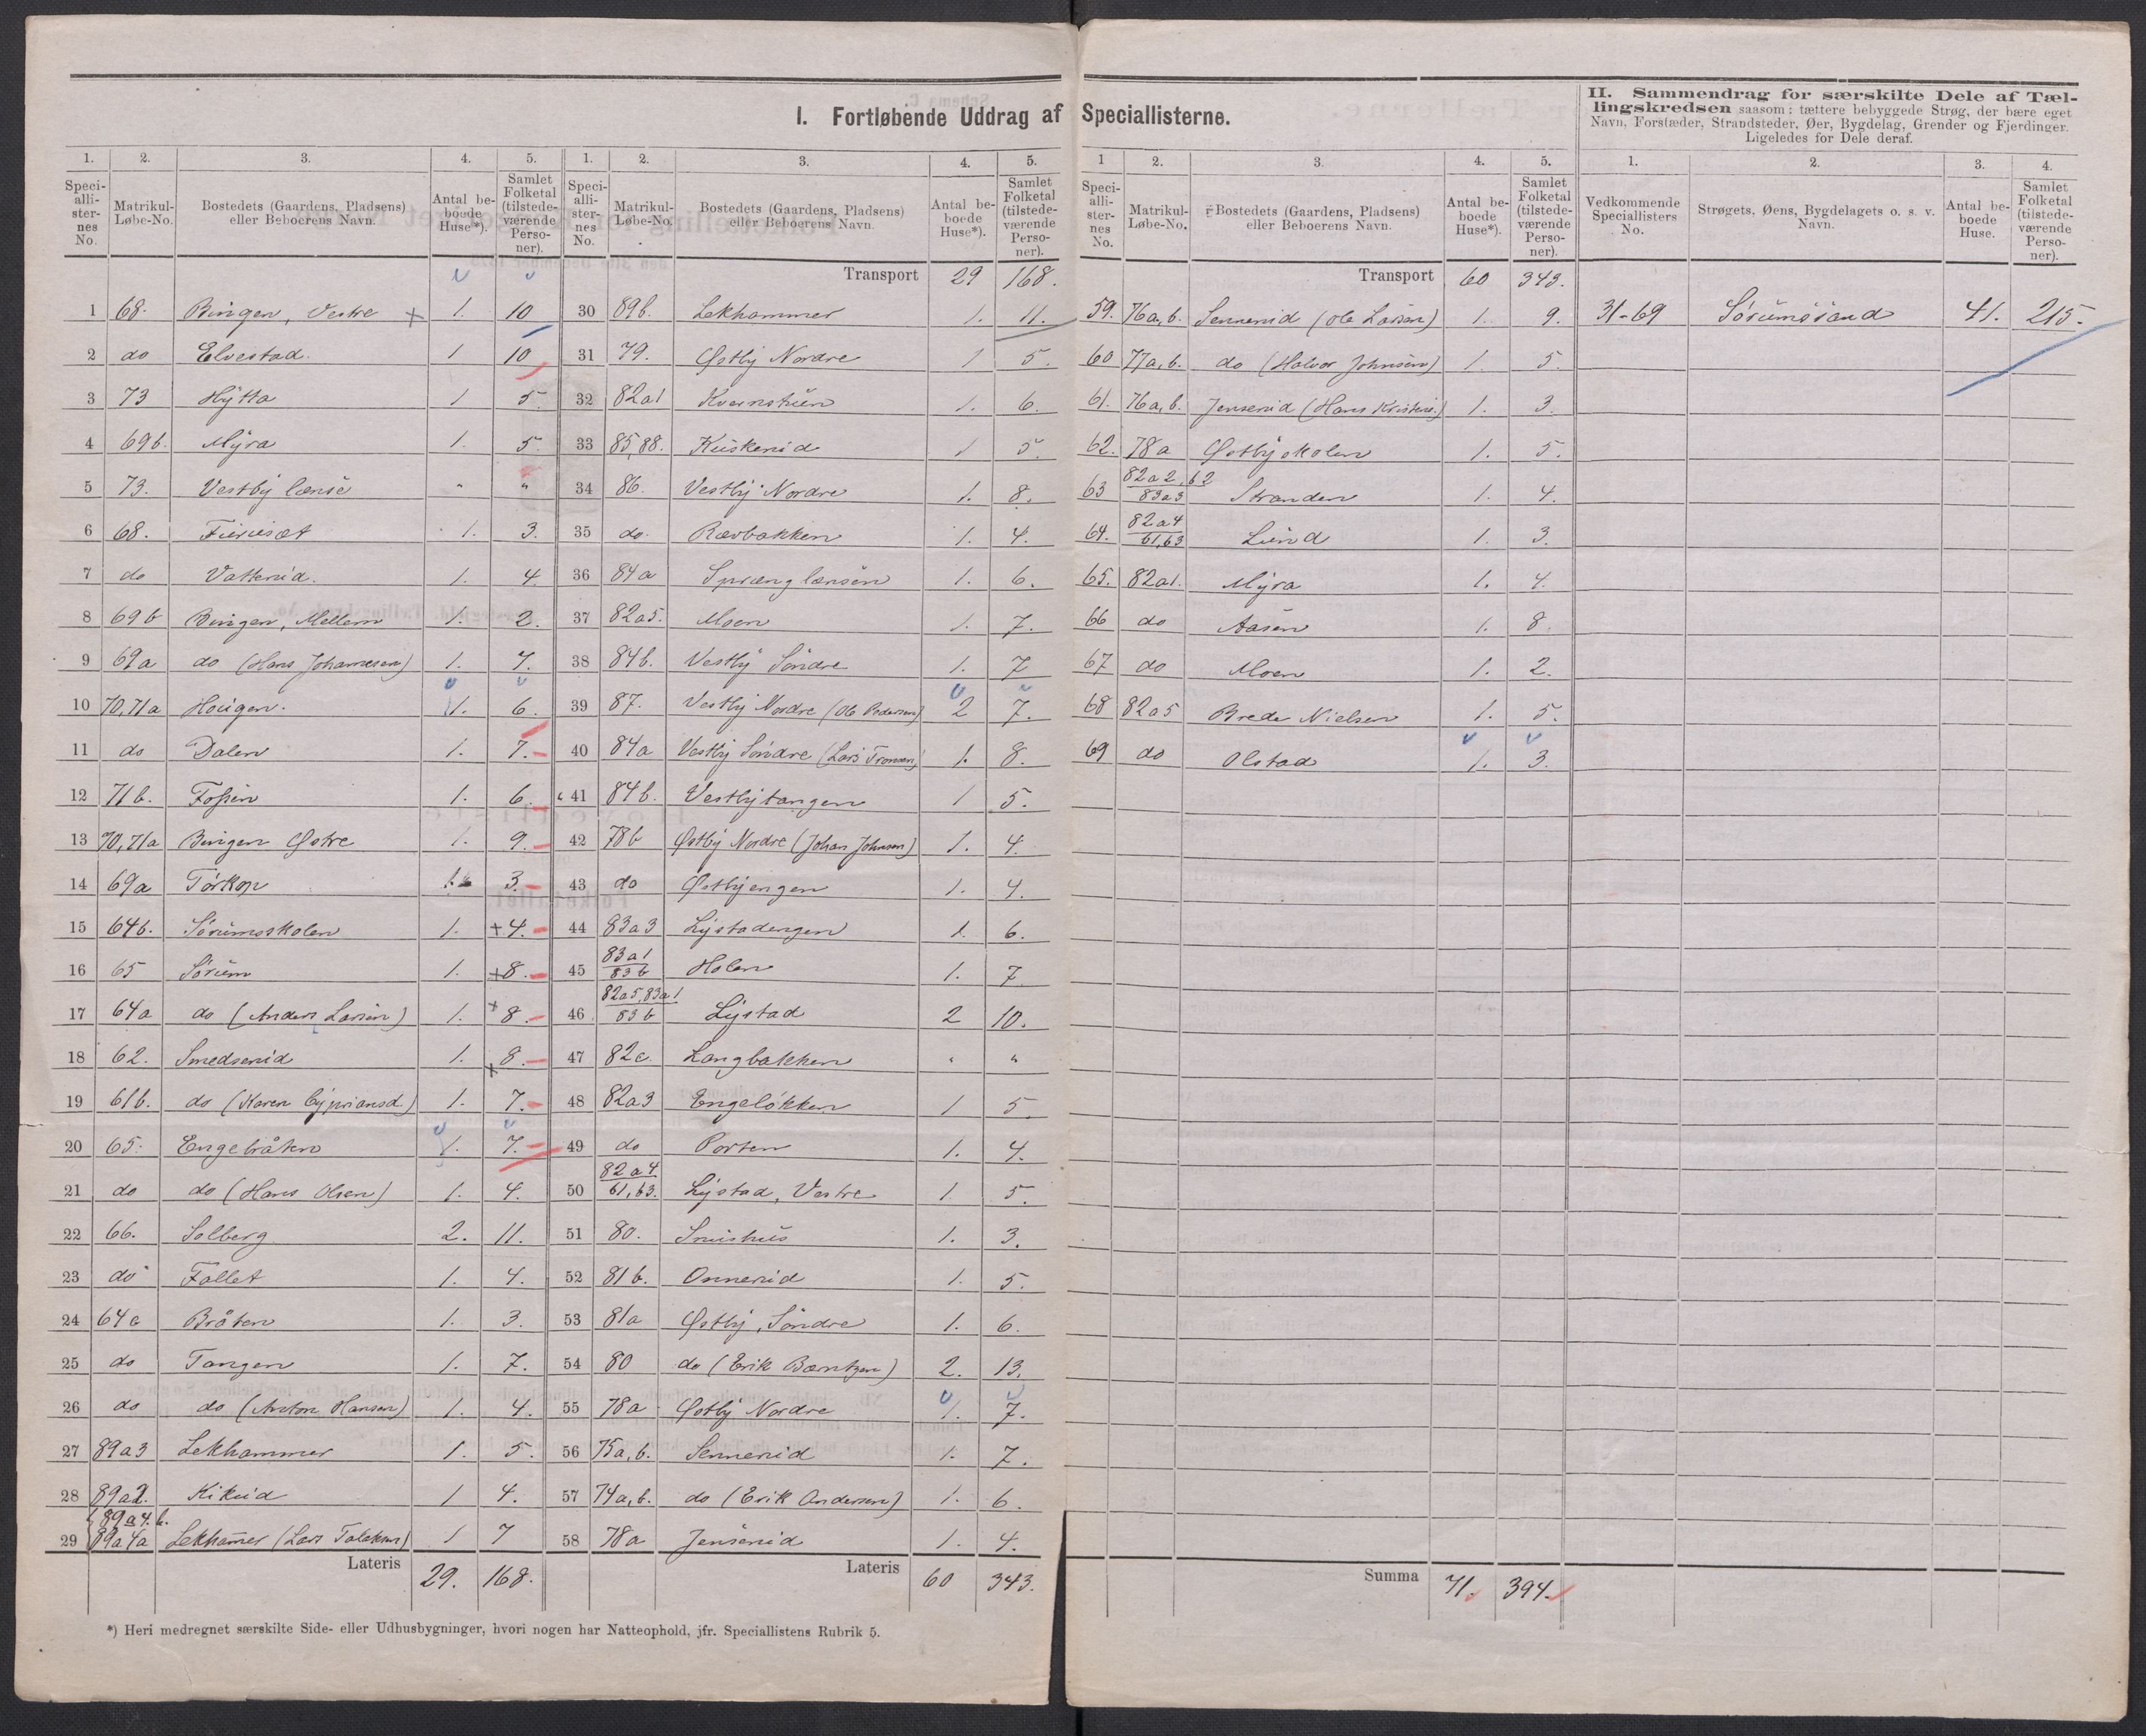 I. Fortløbende Uddrag af Speciallisterne.
II. Sammendrag for særskilte Dele af Tællingskredsen saasom: tættere bebyggede Strøg, der bære eget
Navn, Forstæder, Strandsteder, Øer, Bygdelag, Grender og Fjerdinger.
Ligeledes for Dele deraf.
1. 2. 3. 4. 5.
Speciallisternes No. Matrikul-Løbe-No. Bostedets (Gaardens, Pladsens) eller Beboerens Navn. Antal beboede Huse*). Samlet Folketal (tilstedeværende Personer).
1 68. Bingen, Vestre 1. 10
2 do Elvestad. 1 10
3 73 Hytta 1 5
4 69b. Myra 1. 5
5 73. Vestby lænse " "
6 68. Furuset 1. 3.
7 do Vattenid. 1. 4.
8 69b Bingen, Mellem 1. 2.
9 69a do (Hans Johannesen) 1. 7.
10 70,71a Hougen. 1. 6.
11 do Dalen 1. 7.
12 71b. Fossen 1. 6.
13 70,71a Bingen Østre 1. 9.
14 69a Torkop 1. 3.
15 64b. Sørumsskolen 1. 4.
16 65 Sørum 1. 8.
17 64a do (Anders Larsen) 1. 8.
18 62. Smedsrud 1. 8.
19 61b. do (Karen Cypriansd.) 1. 7.
20 65. Engebråten 1. 7.
21 do do (Hans Olsen) 1. 4.
22 66. Solberg 2. 11.
23 do Fallet 1. 4.
24 64a Bråten 1. 3.
25 do Tangen 1. 7.
26 do do (Anton Hansen) 1. 4.
27 89a3 Lekhammer 1. 5.
28 89a2. Kikud 1 4.
29 89a4.b. 89a4a Lekhamer (Lars ) 1 7
Lateris 29. 168.
1. 2. 3. 4. 5.
Speciallisternes No. Matrikul-Løbe-No. Bostedets (Gaardens, Pladsens) eller Beboerens Navn. Antal beboede Huse*). Samlet Folketal (tilstedeværende Personer).
Transport 29 168.
30 89b. Lekhammer 1. 11.
31 79. Østby Nordre 1 5.
32 82a1 Kvernstuen 1. 6.
33 85,88. Kuskerud 1 5.
34 86. Vestby Nordre 1. 8.
35 do. Rævbakken 1. 4.
36 84a Sprænglænsen 1. 6.
37 82a5. Moen 1. 7.
38 84b. Vestby Søndre 1. 7
39 87. Vestby Nordre (Ole Pedersen) 2 7.
40 84a Vestby Søndre (Lars Tronsen) 1. 8.
41 84b. Vestbytangen 1 5.
42 78b Østby Nordre (Johan Johnsen) 1. 4.
43 do Østbyengen 1. 4.
44 83a3 Lystadengen 1. 6.
45 83a1 83b Holen 1. 7
46 82a5,83a1 83b Lystad 2 10.
47 82c. Langbakken " "
48 82a3 Engeløkken 1 5.
49 do Porten 1. 4.
50 82a4 61,63. Lystad, Vestre 1. 5.
51 80. Snushus 1. 3.
52 81b. Onnerud 1. 5.
53 81a Østby, Søndre 1. 6.
54 80 do (Erik Bærntzen) 2. 13.
55 78a Østby Nordre 1. 7.
56 75a,b. Sennerud 1. 7.
57 74a,b. do (Erik Andersen) 1. 6.
58 78a Jenserud 1. 4.
Lateris 60 343.
1 2. 3. 4. 5.
Speciallisternes No. Matrikul-Løbe-No. Bostedets (Gaardens, Pladsens) eller Beboerens Navn. Antal beboede Huse*). Samlet Folketal (tilstedeværende Personer).
Transport 60 343.
59. 76a,b. Sennerud (Ole Larsen) 1. 9.
60 77a,b. do (Halvor Johnsen) 1. 5.
61. 76a,b. Jenserud (Hans Kristens.) 1. 3.
62. 78a Østbyskolen 1. 5.
63 82a2,b2 83a3 Stranden 1. 4.
64. 82a4 61,63 Lund 1. 3.
65. 82a1. Myra 1. 4.
66 do Aasen 1. 8.
67 do Moen 1. 2.
68 82a5 Brede Nielsen 1. 5.
69 do Olstad 1. 3.
Summa 71. 394.
1. 2. 3. 4.
Vedkommende Speciallisters No. Strøgets, Øens, Bygdelagets o. s. v. Navn. Antal beboede Huse. Samlet Folketal (tilstedeværende Personer).
31-69 Sørumsand 41. 215.
*) Heri medregnet særskilte Side- eller Udhusbygninger, hvori nogen har Natteophold, jfr. Speciallistens Rubrik 5.